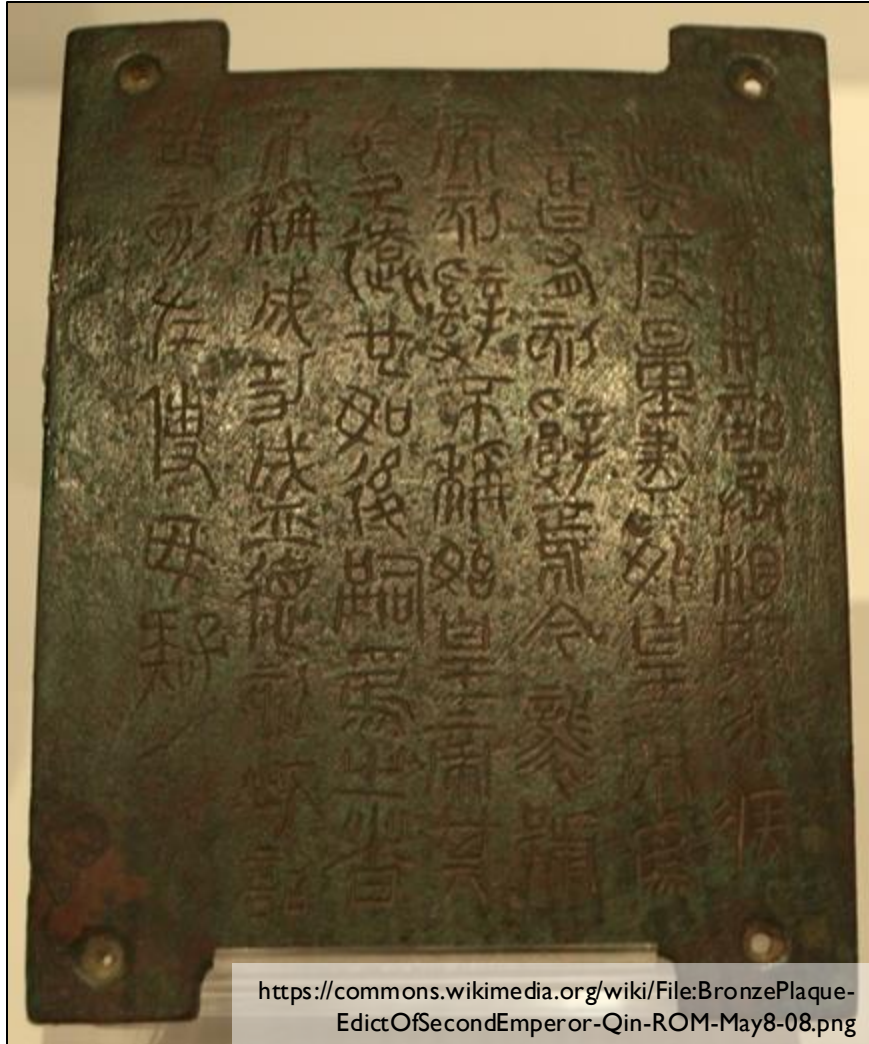 元年制詔丞相斯去疾
灋度量盡始皇帝為
之皆有刻辭焉今襲號
而刻辭不稱始皇帝其
於久遠也如後嗣為之者
不稱成功盛德刻此詔
故刻左使毋疑
https://commons.wikimedia.org/wiki/File:BronzePlaque-
EdictOfSecondEmperor-Qin-ROM-May8-08.png